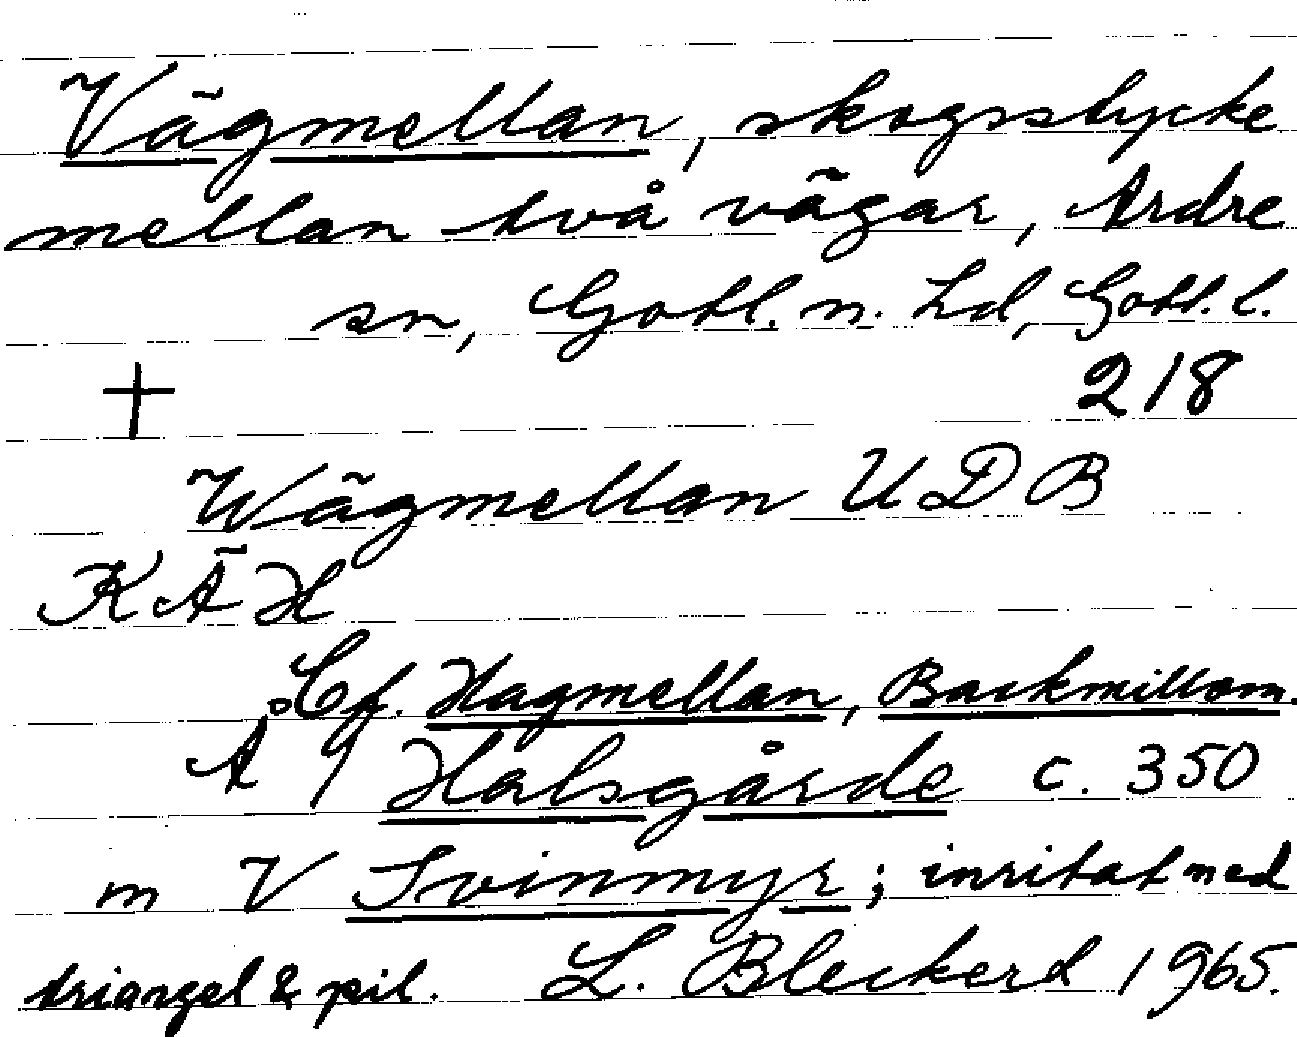 Vägmellan, skogsstycke
mellan två vägar, Ardre
sn, Gotl. n. hd, Gotl. l.
+ 218
Wägmellan U D B
K Ä H
Cf. Hagmellan, Backmillom.
A 9 Halsgårde c. 350
m V Svinmyr; inritat med
triangel & pil. L. Bleckerd 1965.